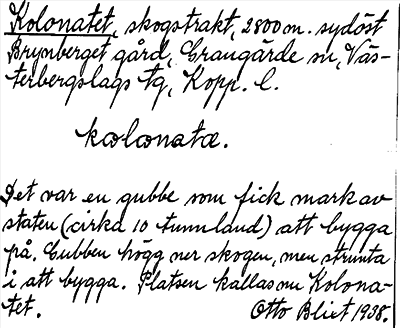 Kolonatet, skogstrakt, 2800 m. sydöst
Brynberget gård, Grangärde sn, Väs-
terbergslags tg, Kopp. l.
kɷlɷnatæ.
Det var en gubbe som fick mark av
staten (cirka 10 tunnland) att bygga
på. Gubben högg ner skogen, men strunta
i att bygga. Platsen kallas nu Kolona-
tet. Otto Blixt 1938.